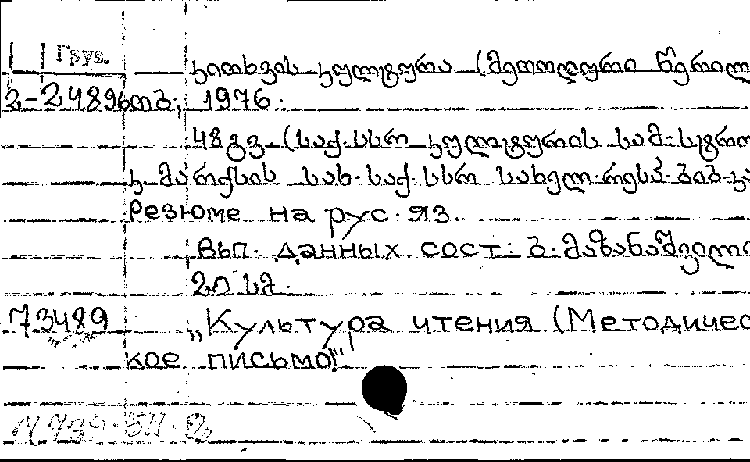 Груз.
კითხვის კულტურა (მეთოდური წერილ
2-2489 თბ., 1976.
48 გვ. (საქ. სსრ კულტურის სამ-სტრო
კ. მარქსის სახ. საქ. სსრ სახელ. რესპ. ბიბ-კა
Резюме на рус. яз.
Вып. данных сост. ნ. მაზანაშვილი
20 სმ.
73489 „Культура чтения (Методичес
кое письмо)"